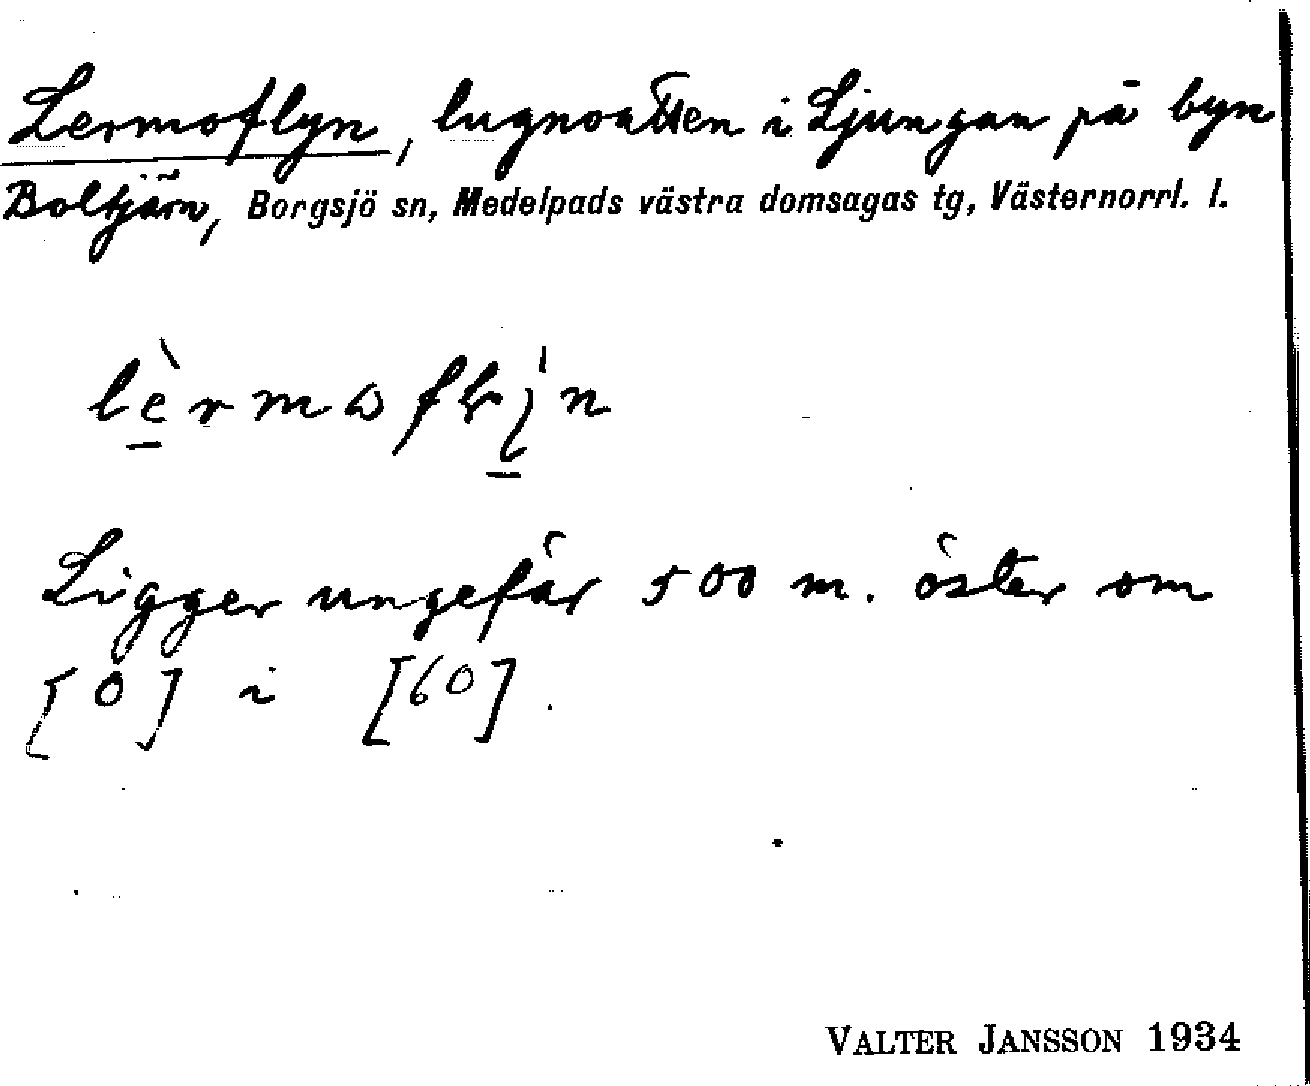 Lermoflyn, lugnvatten i Ljungan på byn
Boltjärn, Borgsjö sn, Medelpads västra domsagas tg, Västernorrl. l.
Ligger ungefär 500 m. öster om
[0] i [60].
VALTER JANSSON 1934